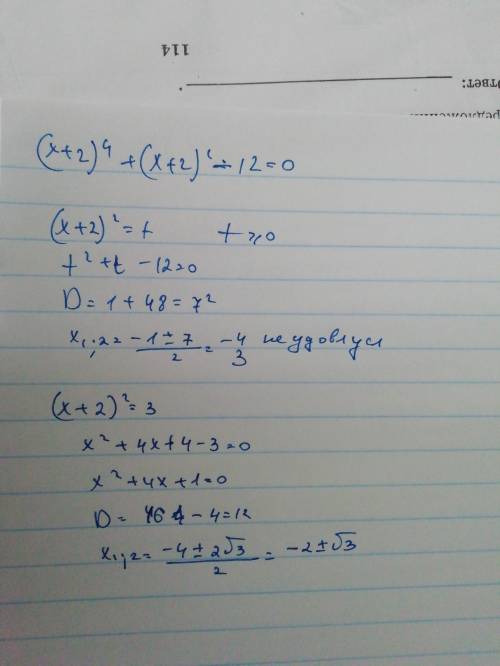 114
ответ:
(x+2)⁴ + (x+2)² - 12 = 0
(x+2)² = t t ⩾ 0
t² + t - 12 = 0
D = 1 + 48 = 7²
x₁;₂ = (-1 ± 7)/2 = -4 не удовл усл
3
(x+2)² = 3
x² + 4x + 4 - 3 = 0
x² + 4x + 1 = 0
D = 16 - 4 = 12
x₁,₂ = (-4 ± 2√3)/2 = -2 ± √3